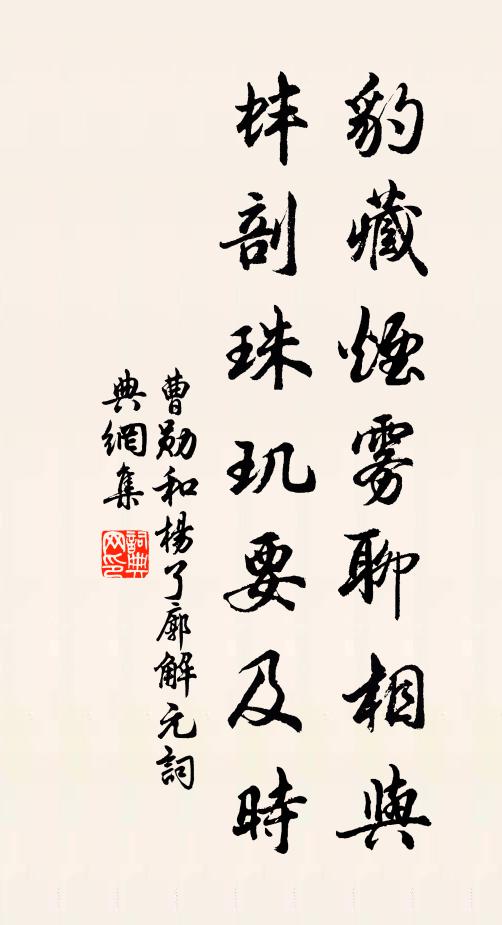 豹藏煙霧聊相與
蚌剖珠玑要及時
曹勛和楊了廓解元詞
典網集
詞典
网印